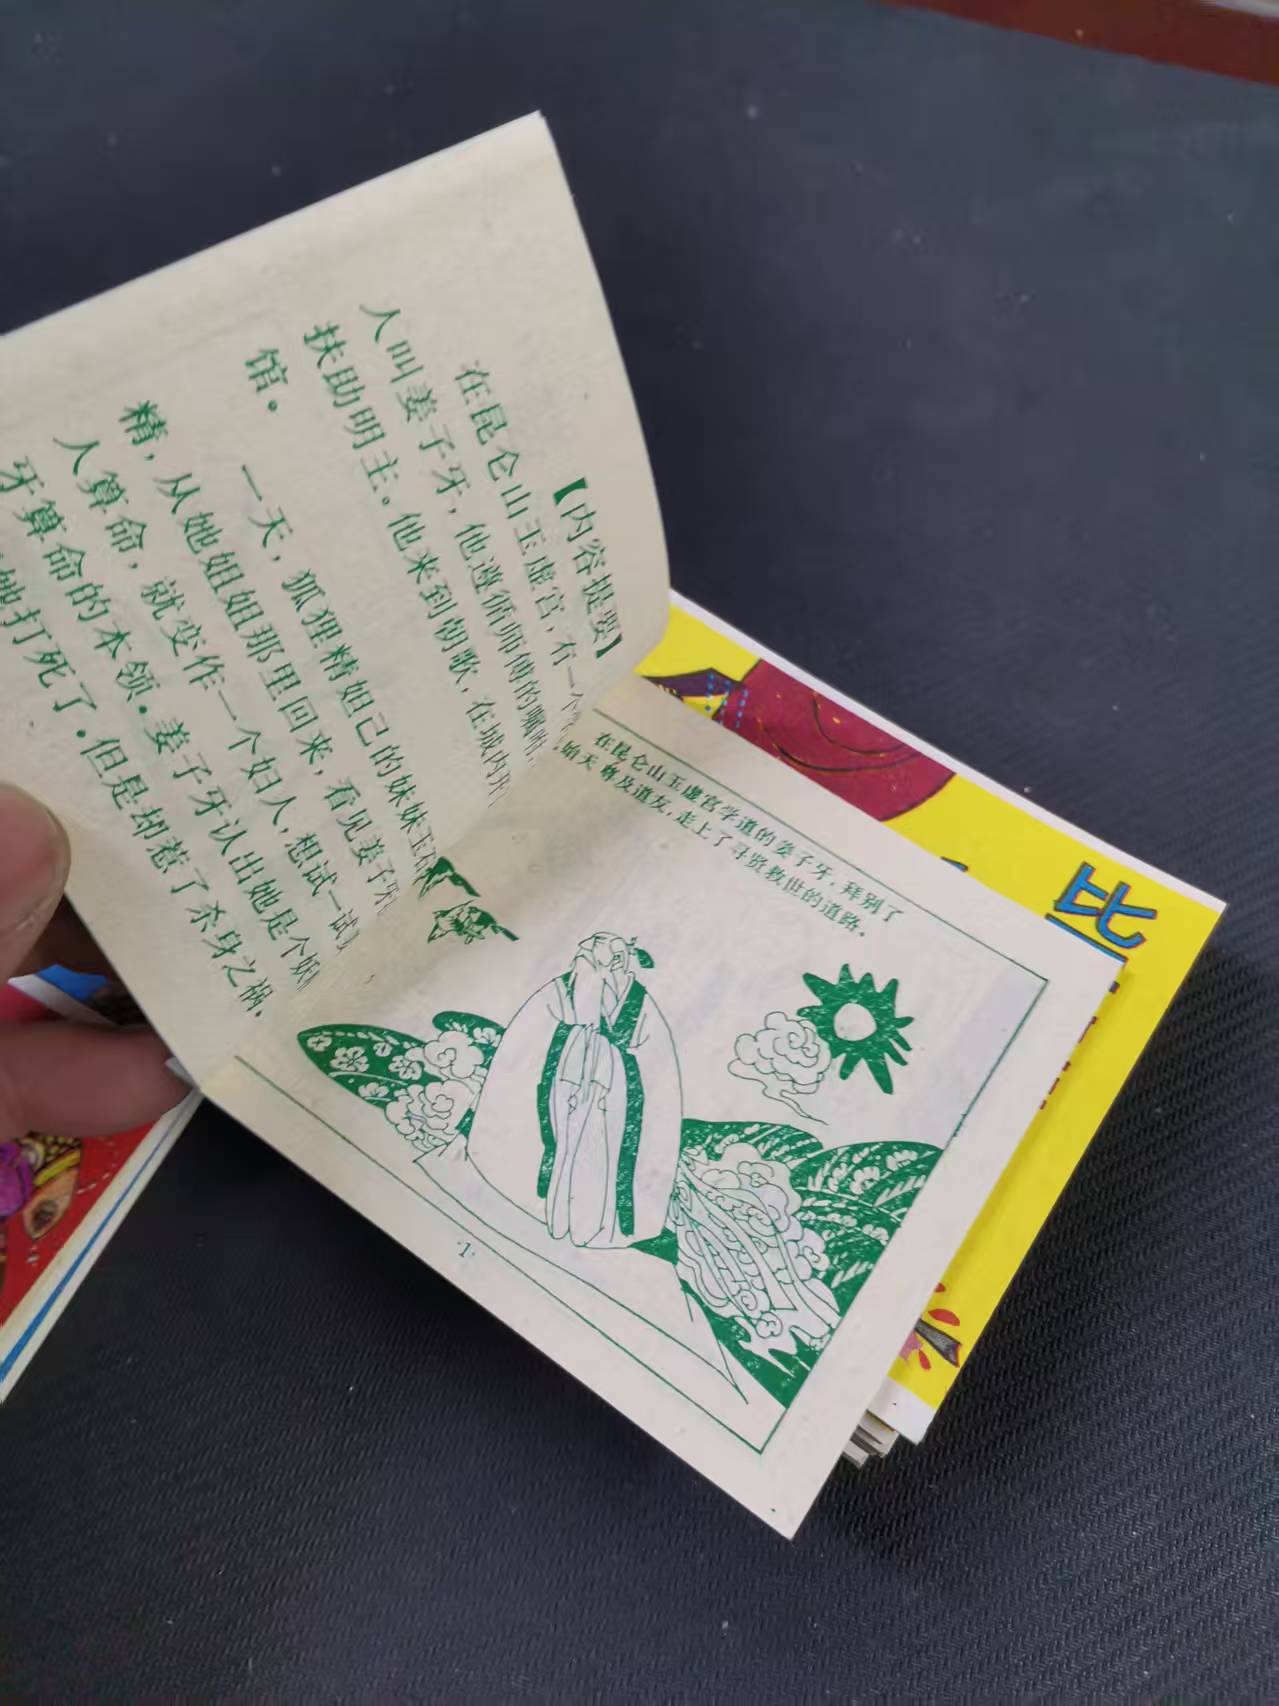 【内容提要】
在昆仑山玉虚宫，有一个
人叫姜子牙，他遵循师傅的嘱咐，
扶助明主。他来到朝歌，在城内开
馆。
一天，狐狸精妲己的妹妹玉石
精，从她姐姐那里回来，看见姜子牙
人算命，就变作一个妇人，想试一试
牙算命的本领。姜子牙认出她是个妖
她打死了。但是却惹了杀身之祸。
在昆仑山玉虚宫学道的姜子牙，拜别了
始天尊及道友，走上了寻贤救世的道路。
1
比